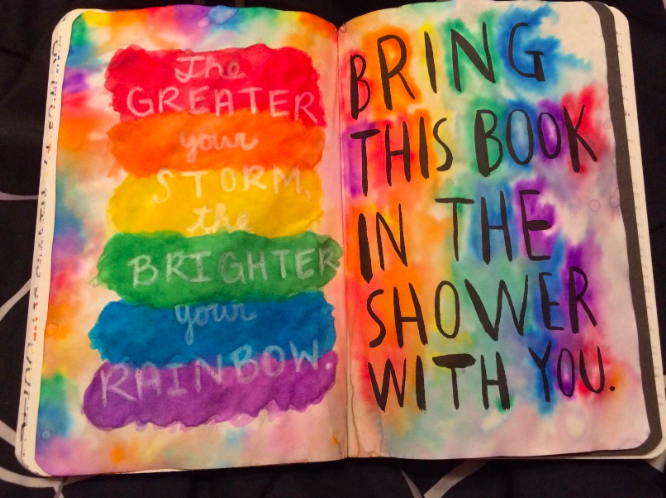 The
GREATER
your
STORM,
the
BRIGHTER
your
RAINBOW.
BRING
THIS BOOK
IN THE
SHOWER
WITH YOU.